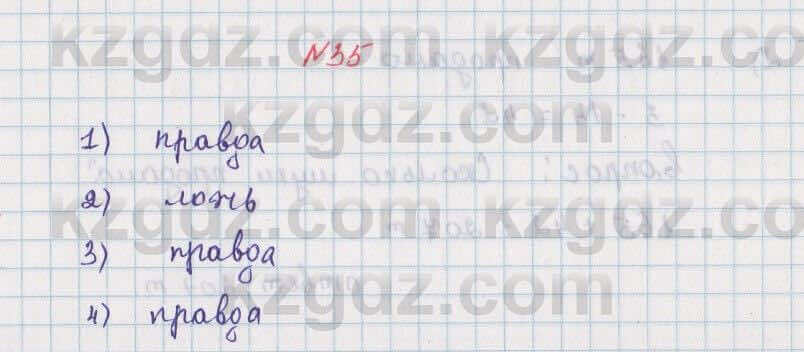 kzgdz.com kzgdz.com
№35
kzgdz.com
1) правда
kzgdz.com kzgdz.com
2) ложь
3) правда
kzgdz.com
4) правда